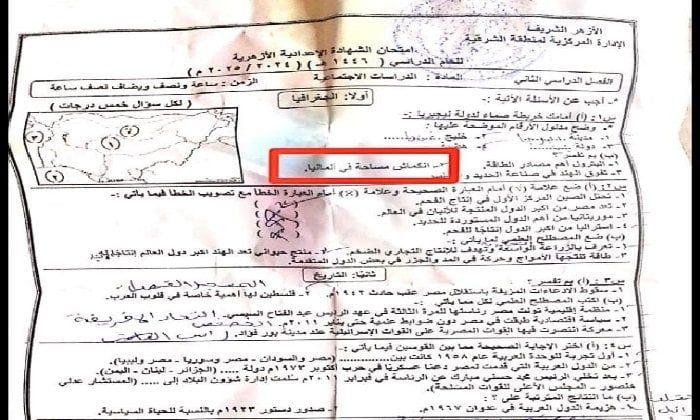 الأزهر الشريف
الإدارة المركزية لمنطقة الشرقية
امتحان الشهادة الإعدادية الأزهرية
للعام الدراسي (١٤٤٦ هـ) (٢٠٢٤ / ٢٠٢٥ م)
الفصل الدراسي الثاني المادة: الدراسات الاجتماعية الزمن: ساعة ونصف ويضاف نصف ساعة
أولا: الجغرافيا
*- أجب عن الأسئلة الآتية: (لكل سؤال خمس درجات)
س١: (أ) أمامك خريطة صماء لدولة نيجيريا:
* وضح مدلول الأرقام الموضحة عليها:
١- مدينة ٢- خليج
٣- دولة ٤- هضبة
(ب) بم تفسر؟
١- البترول أهم مصادر الطاقة. ٢- انكماش مساحة في ألمانيا.
٣- تفوق الهند في صناعة الحديد
س٢: (أ) ضع علامة (√) أمام العبارة الصحيحة وعلامة (×) أمام العبارة الخطأ مع تصويب الخطأ فيما يأتي:
١- تحتل الصين المركز الأول في إنتاج الفحم.
٢- تعد مصر من أكبر الدول المنتجة للألبان في العالم.
٣- موريتانيا من أهم الدول المستوردة للحديد.
٤- استراليا من أكبر الدول إنتاجًا للفحم.
(ب) ضع المصطلح العلمي لما يأتي:
١- تعرف بالزراعة الواسعة وتهدف للإنتاج التجاري الضخم. ٢- منتج حيواني تعد الهند أكبر دول العالم إنتاجا له
٣- طاقة تنتجها الأمواج وحركة في المد والجزر في بعض الدول المتقدمة.
ثانيًا: التاريخ
س٣: (أ) بم تفسر؟
١- سقوط الادعاءات المزيفة باستقلال مصر عقب حادث ١٩٤٢م. ٢- فلسطين لها أهمية خاصة في قلوب العرب.
(ب) اكتب المصطلح العلمي لكل مما يأتي:
١- منظمة إقليمية تولت مصر رئاستها للمرة الثالثة في عهد الرئيس عبد الفتاح السيسي.
٢- سياسة اقتصادية طبقت في مصر دون ضوابط علمية حتى يناير ٢٠١١م.
٣- معركة انتصرت فيها القوات المصرية على القوات الإسرائيلية عند مدينة بور فؤاد.
س٤: (أ) اختر الإجابة الصحيحة مما بين القوسين فيما يأتي:
١- أول تجربة للوحدة العربية عام ١٩٥٨ كانت بين (مصر والسودان - مصر وسوريا - مصر وليبيا).
٢- من الدول العربية التي قدمت لمصر دعمًا عسكريًا في حرب أكتوبر ١٩٧٣م دولة (الجزائر - لبنان - اليمن).
٣- بعد تخلي الرئيس محمد حسني مبارك عن الرئاسة في فبراير ٢٠١١م سلمت إدارة شؤون البلاد إلى (المستشار عدلي
منصور - المجلس الأعلى للقوات المسلحة).
(ب) ما النتائج المترتبة على؟
١- هزيمة الدول العربية في عدوان ١٩٦٧م. ٢- صدور دستور ١٩٢٣م بالنسبة للحياة السياسية.